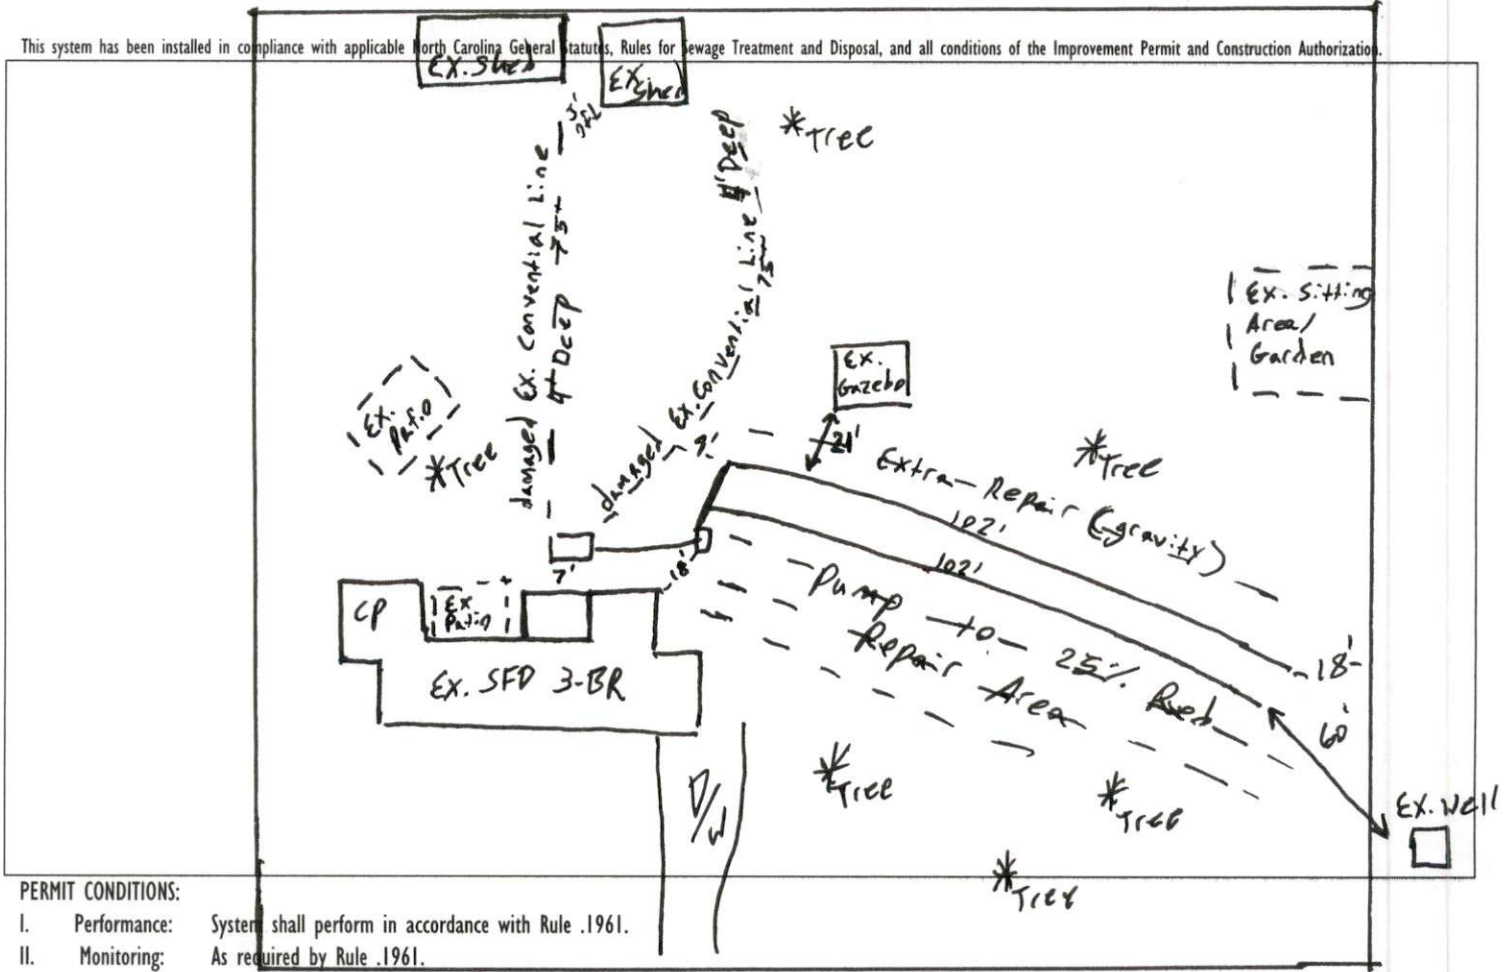 This system has been installed in compliance with applicable North Carolina General Statutes, Rules for Sewage Treatment and Disposal, and all conditions of the Improvement Permit and Construction Authorization.
EX. Shed
EX. Shed
*Tree
damaged Ex. Convential Line
4' Deep 75'
damaged Ex. Convential Line 4' Deep
75'
Ex. Sitting
Area/
Garden
EX.
Gazebo
EX.
Patio
*Tree
9'
21'
*Tree
Extra Repair (gravity)
102'
102'
7'
18'
Pump to 25% Red.
Repair Area
18'
60'
CP
EX
Patio
EX. SFD 3-BR
D/W
*Tree
*Tree
*Tree
EX. Well
PERMIT CONDITIONS:
I. Performance: System shall perform in accordance with Rule .1961.
II. Monitoring: As required by Rule .1961.